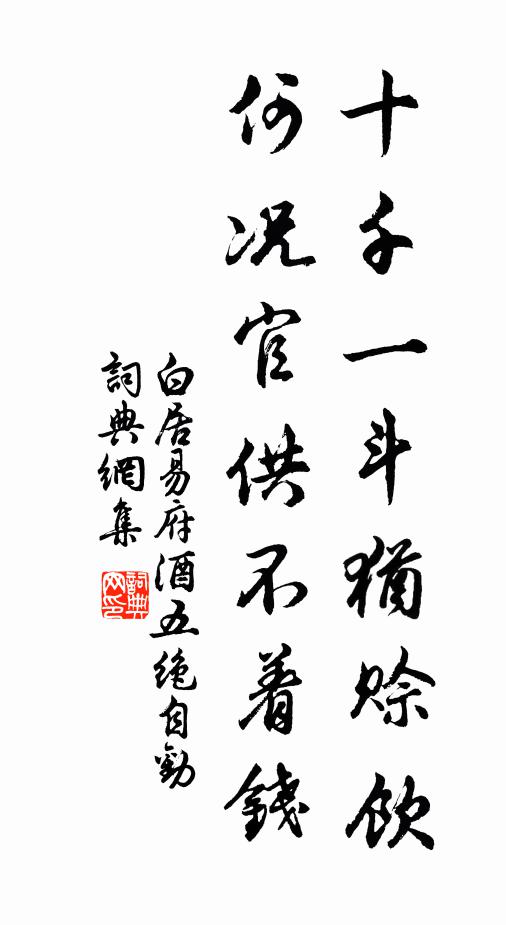 十千一斗猶赊飲
何况官供不着錢
白居易府酒五絶自勸
詞典網集
詞典网印